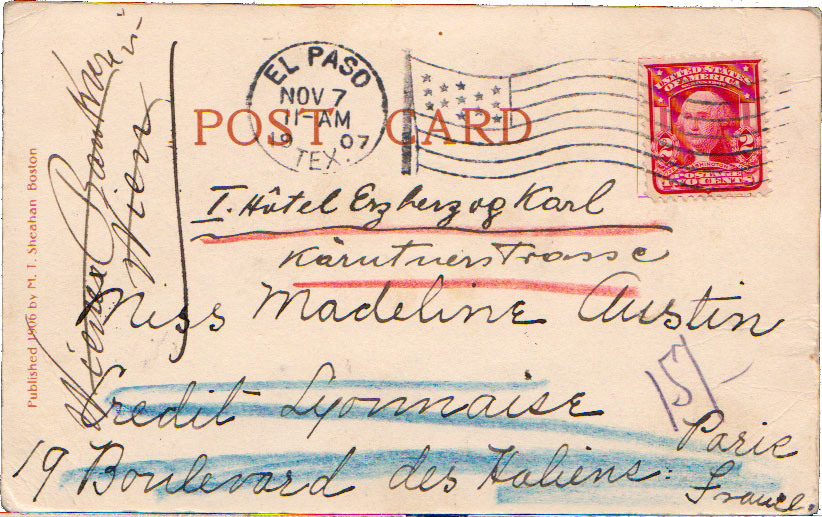 EL PASO
NOV 7
11-AM
19 07
TEX.
POST CARD
UNITED STATES
OF AMERICA
2 2
POSTAGE
TWO CENTS
I. Hôtel Erzherzog Karl
Kärntnerstrasse
Miss Madeline Austin
Credit Lyonnaise
19 Boulevard des Italiens.
Paris
France.
15/-
Wiener Bankverein
Wien
Published 1906 by M. T. Sheahan Boston